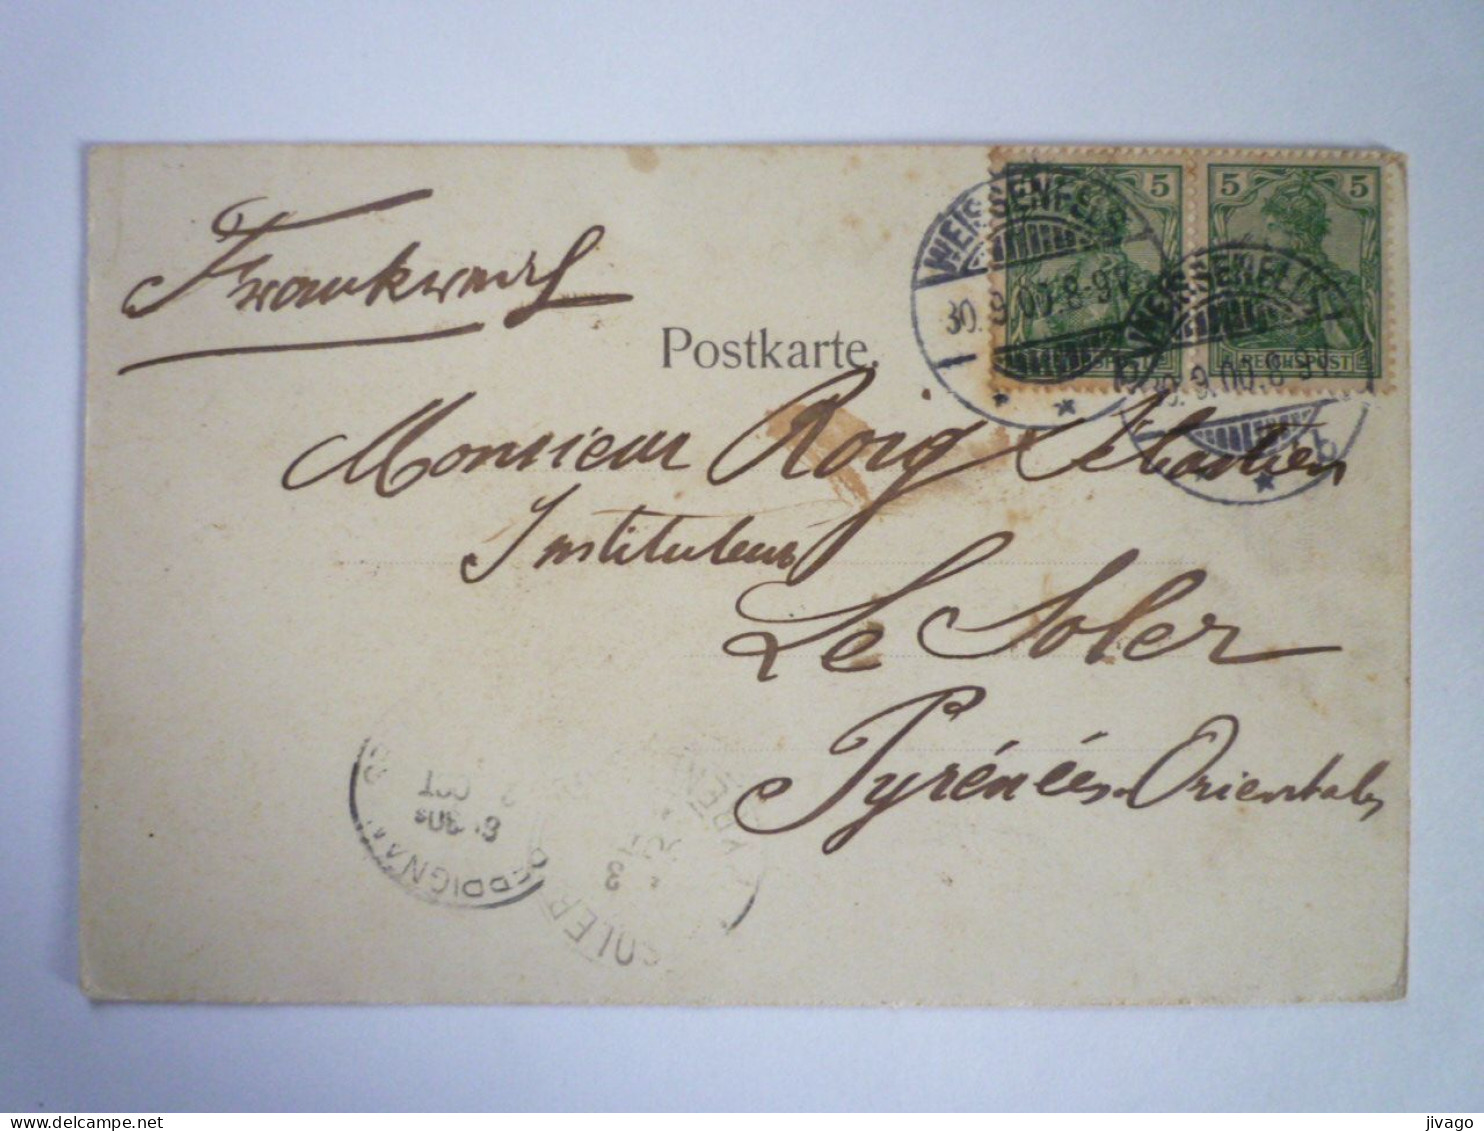 WEISSENFELS
30.9.00.8-9V.
5
5 5
WEISSENFELS
30.9.00.8-9V.
REICHSPOST
Frankreich
Postkarte.
Monsieur Roig Sébastien
Instituteur
Le Soler
Pyrénées-Orientales
PERPIGNAN
OCT
SOLER
3
delcampe.net
jivago